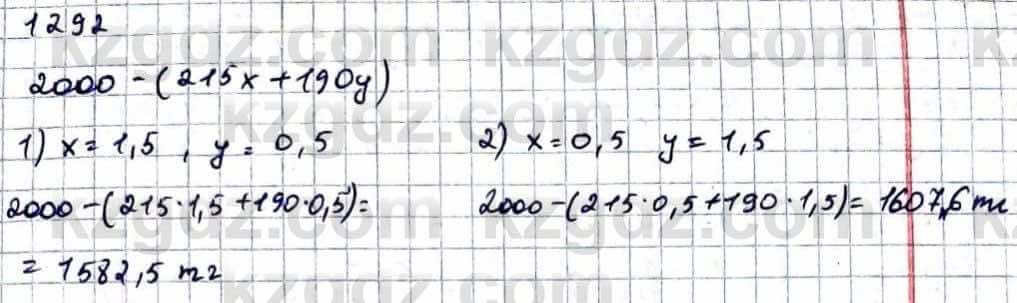 1292
2000 - (215x + 190y)
1) x = 1,5 , y = 0,5
2) x = 0,5 y = 1,5
2000 - (215·1,5 + 190·0,5) =
= 1582,5 тг
2000 - (215·0,5 + 190·1,5) = 1607,6 тг
kzgdz.com kzgdz.com
kzgdz.com
kzgdz.com kzgdz.com
kzgdz.com